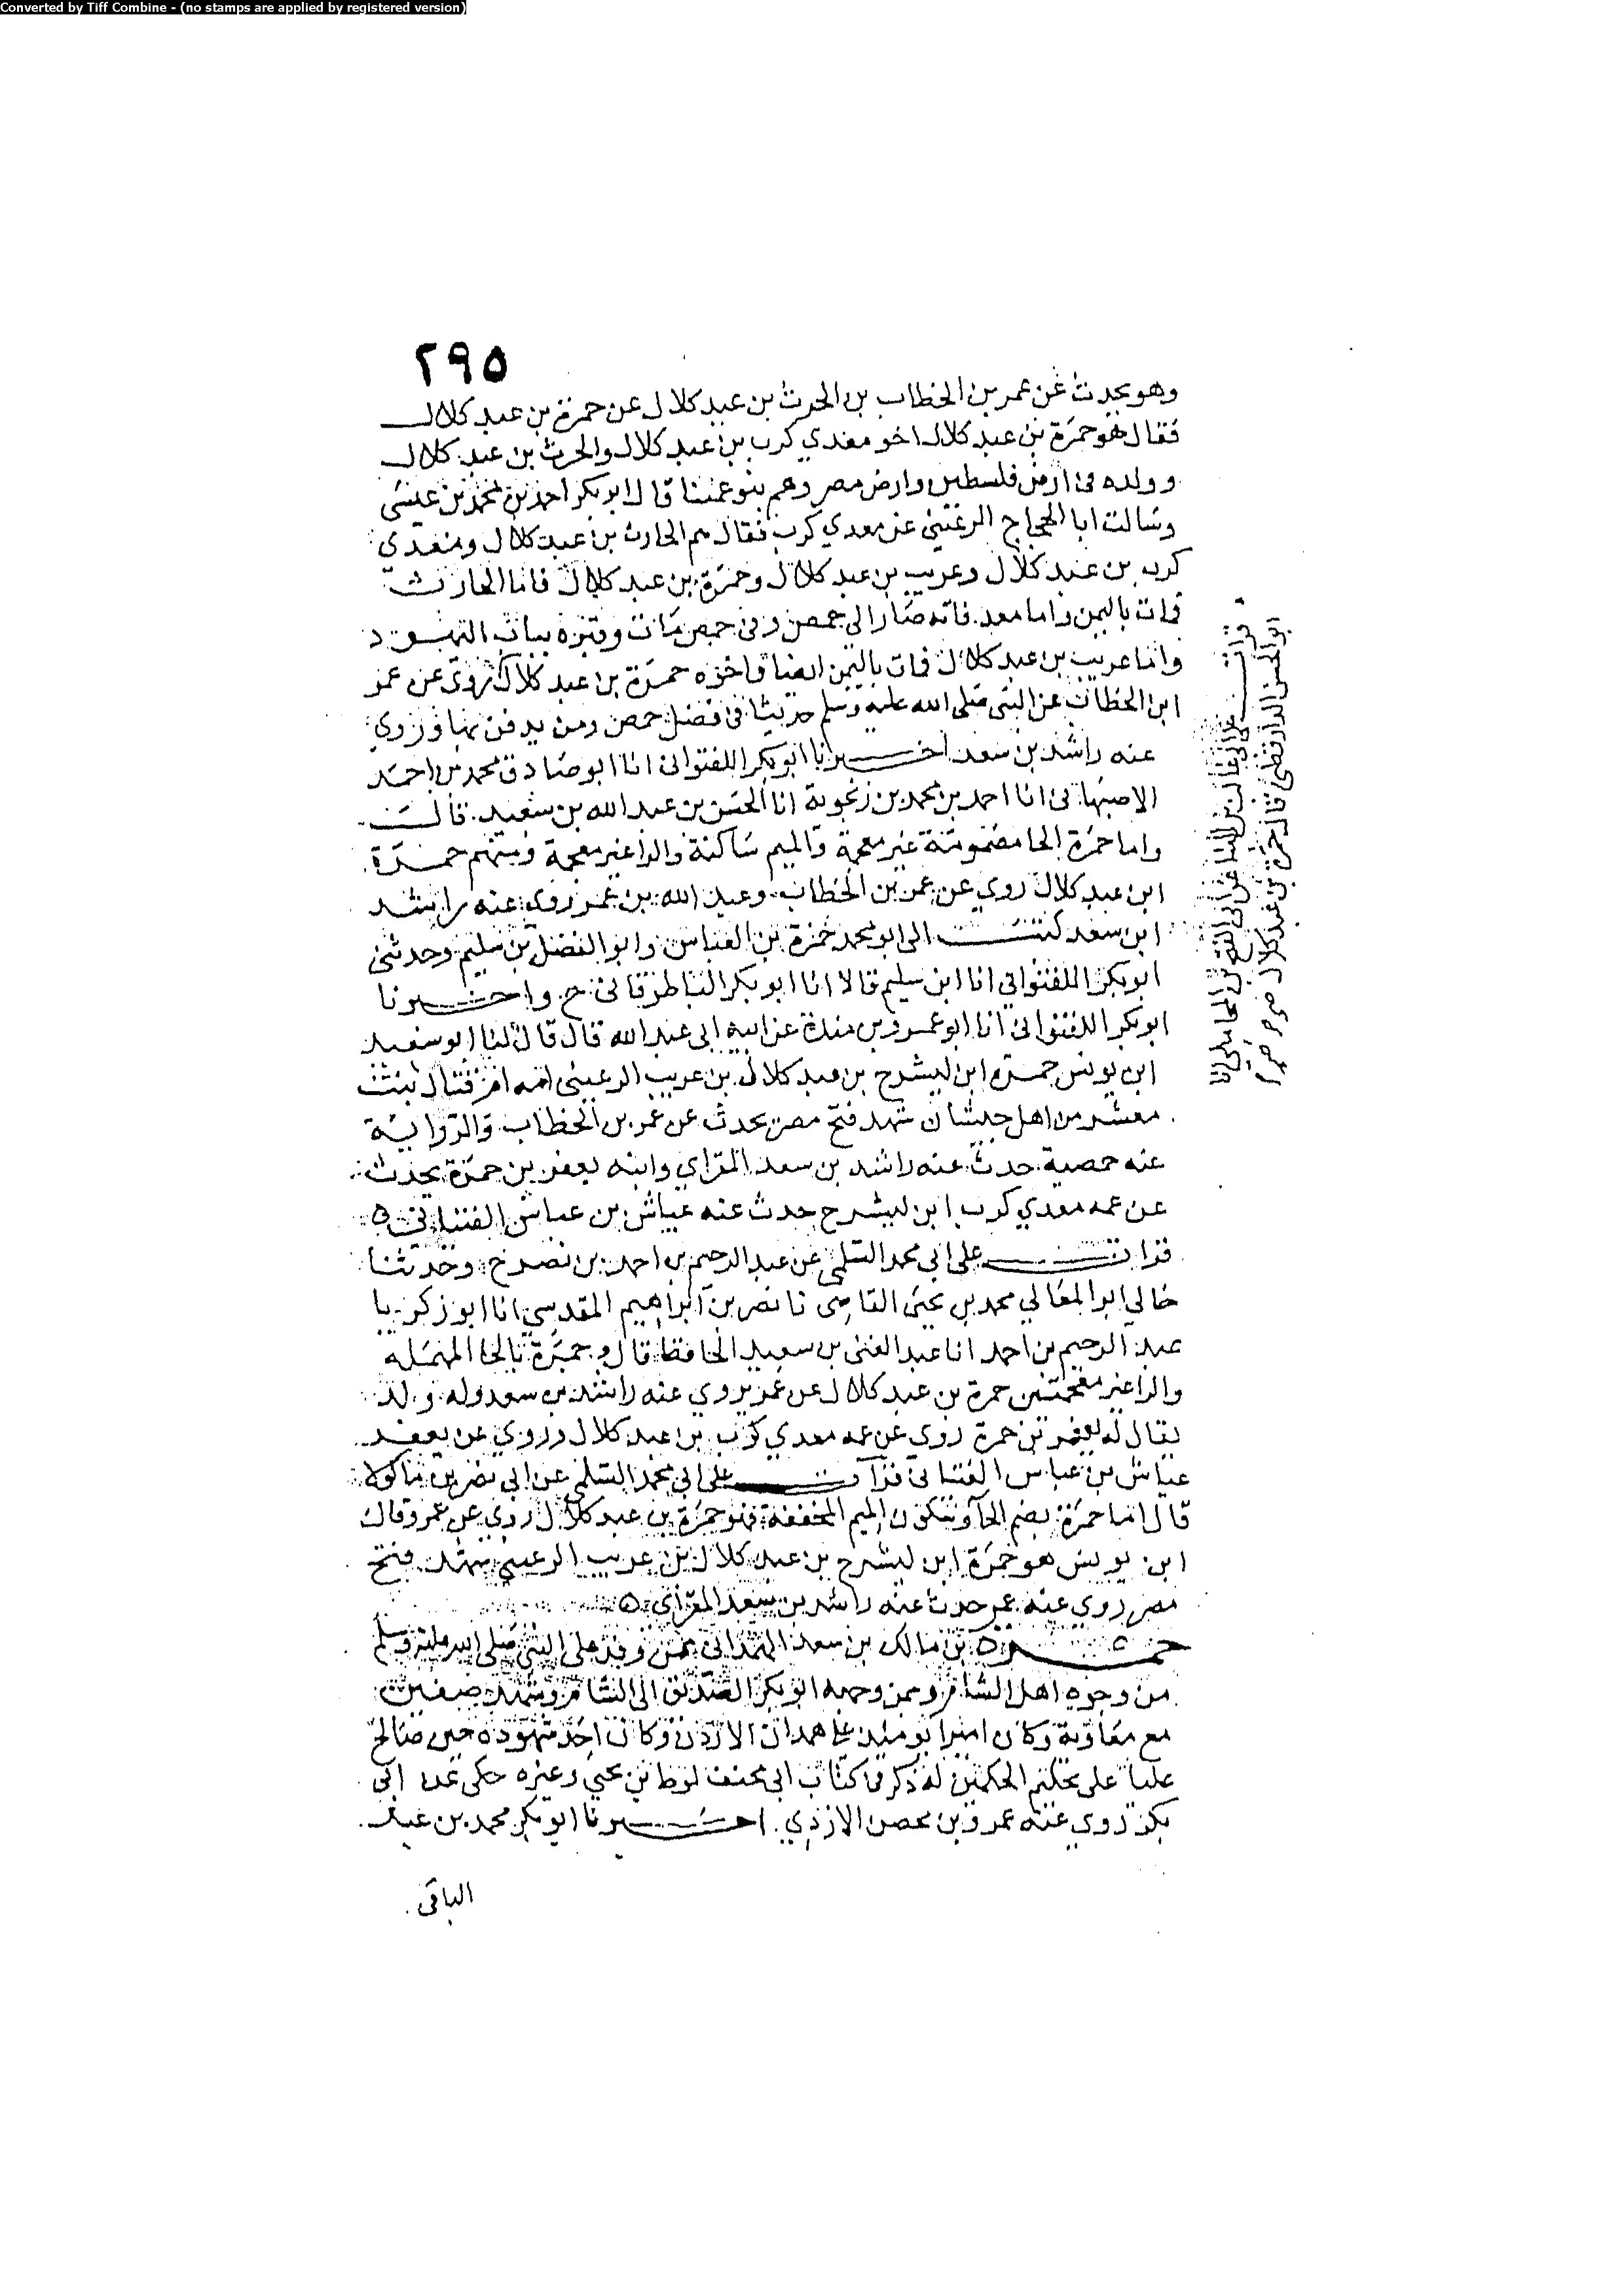 Converted by Tiff Combine - (no stamps are applied by registered version)
٢٩٥
وهو يحدث عن عمر بن الخطاب بن الحرث بن عبد كلال عن حمرة بن عبد كلال
فقال هو حمرة بن عبد كلال اخو معدي كرب بن عبد كلال والحرث بن عبد كلال
وولده في ارض فلسطين وارض مصر وهم بنو عمنا قال ابو بكر احمد بن محمد بن عيسى
وسالت ابا الحجاج الرعيني عن معدي كرب فقال هم الحارث بن عبد كلال ومعدي
كرب بن عبد كلال وعريب بن عبد كلال وحمرة بن عبد كلال فاما الحارث
فمات باليمن واما معد فانه صار الى حمص وفي حمص مات وقبره بباب اليهود
واما عريب بن عبد كلال فمات باليمن ايضا واخوه حمرة بن عبد كلال روى عن عمر
ابن الخطاب عن النبي صلى الله عليه وسلم حديثا في فضل حمص ومن يدفن بها وروي
عنه راشد بن سعد اخبرنا ابو بكر اللفتواني انا ابو صادق محمد بن احمد
الاصبهاني انا احمد بن محمد بن زنجوية انا الحسن بن عبد الله بن سعيد قال
واما حمرة الحا مضمومة غير معجمة والميم ساكنة والرا غير معجمة ومنهم حمرة
ابن عبد كلال روي عن عمر بن الخطاب وعبد الله بن عمر روى عنه راشد
ابن سعد كتب الى ابو محمد حمزة بن العباس وابو الفضل بن سليم وحدثني
ابو بكر اللفتواني انا ابن سليم قالا انا ابو بكر الباطرقاني ح واخبرنا
ابو بكر اللفتواني انا ابو عمرو بن مندة عن ابيه ابي عبد الله قال قال لنا ابو سعيد
ابن يونس حمرة ابن ليشرح بن عبد كلال بن عريب الرعيني امه بنت
معشر من اهل جيشان شهد فتح مصر يحدث عن عمر بن الخطاب والرواية
عنه حمصية حدث عنه راشد بن سعد المقراي وابنه يعفر بن حمرة يحدث
عن عمه معدي كرب ابن ليشرح حدث عنه عياش بن عباس القتباني ه
قرات على ابي محمد السلمي عن عبد الرحيم بن احمد بن نصر ح وحدثنا
خالي ابو المعالي محمد بن يحيى القاضي نا نصر بن ابراهيم المقدسي انا ابو زكريا
عبد الرحيم بن احمد انا عبد الغني بن سعيد الحافظ قال وحمرة بالحا المهملة
والرا غير معجمتين حمرة بن عبد كلال عن عمر يروي عنه راشد بن سعد وله ولد
يقال له يعفر بن حمرة روى عن عمه معدي كرب بن عبد كلال وروي عن يعفر
عياش بن عباس القتباني قرات على ابي محمد السلمي عن ابي نصر بن ماكولا
قال اما حمرة بضم الحا وسكون الميم المخففة فهو حمرة بن عبد كلال روي عن عمر وقال
ابن يونس هو حمرة ابن ليشرح بن عبد كلال بن عريب الرعيني شهد فتح
مصر روي عنه عمر حدث عنه راشد بن سعد المقراي ه
حمزة بن مالك بن سعد الهمداني ممن وفد على النبي صلى الله عليه وسلم
من وجوه اهل الشام وممن وجهه ابو بكر الصديق الى الشام وشهد صفين
مع معاوية وكان اميرا يومئذ على همدان الاردن وكان احد شهوده حين صالح
عليا على تحكيم الحكمين له ذكر في كتاب ابي مخنف لوط بن يحيى وغيره حكى عن ابي
بكر روي عنه عمرو بن محصن الازدي اخبرنا ابو بكر محمد بن عبد
الباقي
قرات على ابي غالب بن البنا عن ابي الفتح بن المحاملي انا
ابو الحسن الدارقطني قال حمرة بن عبد كلال